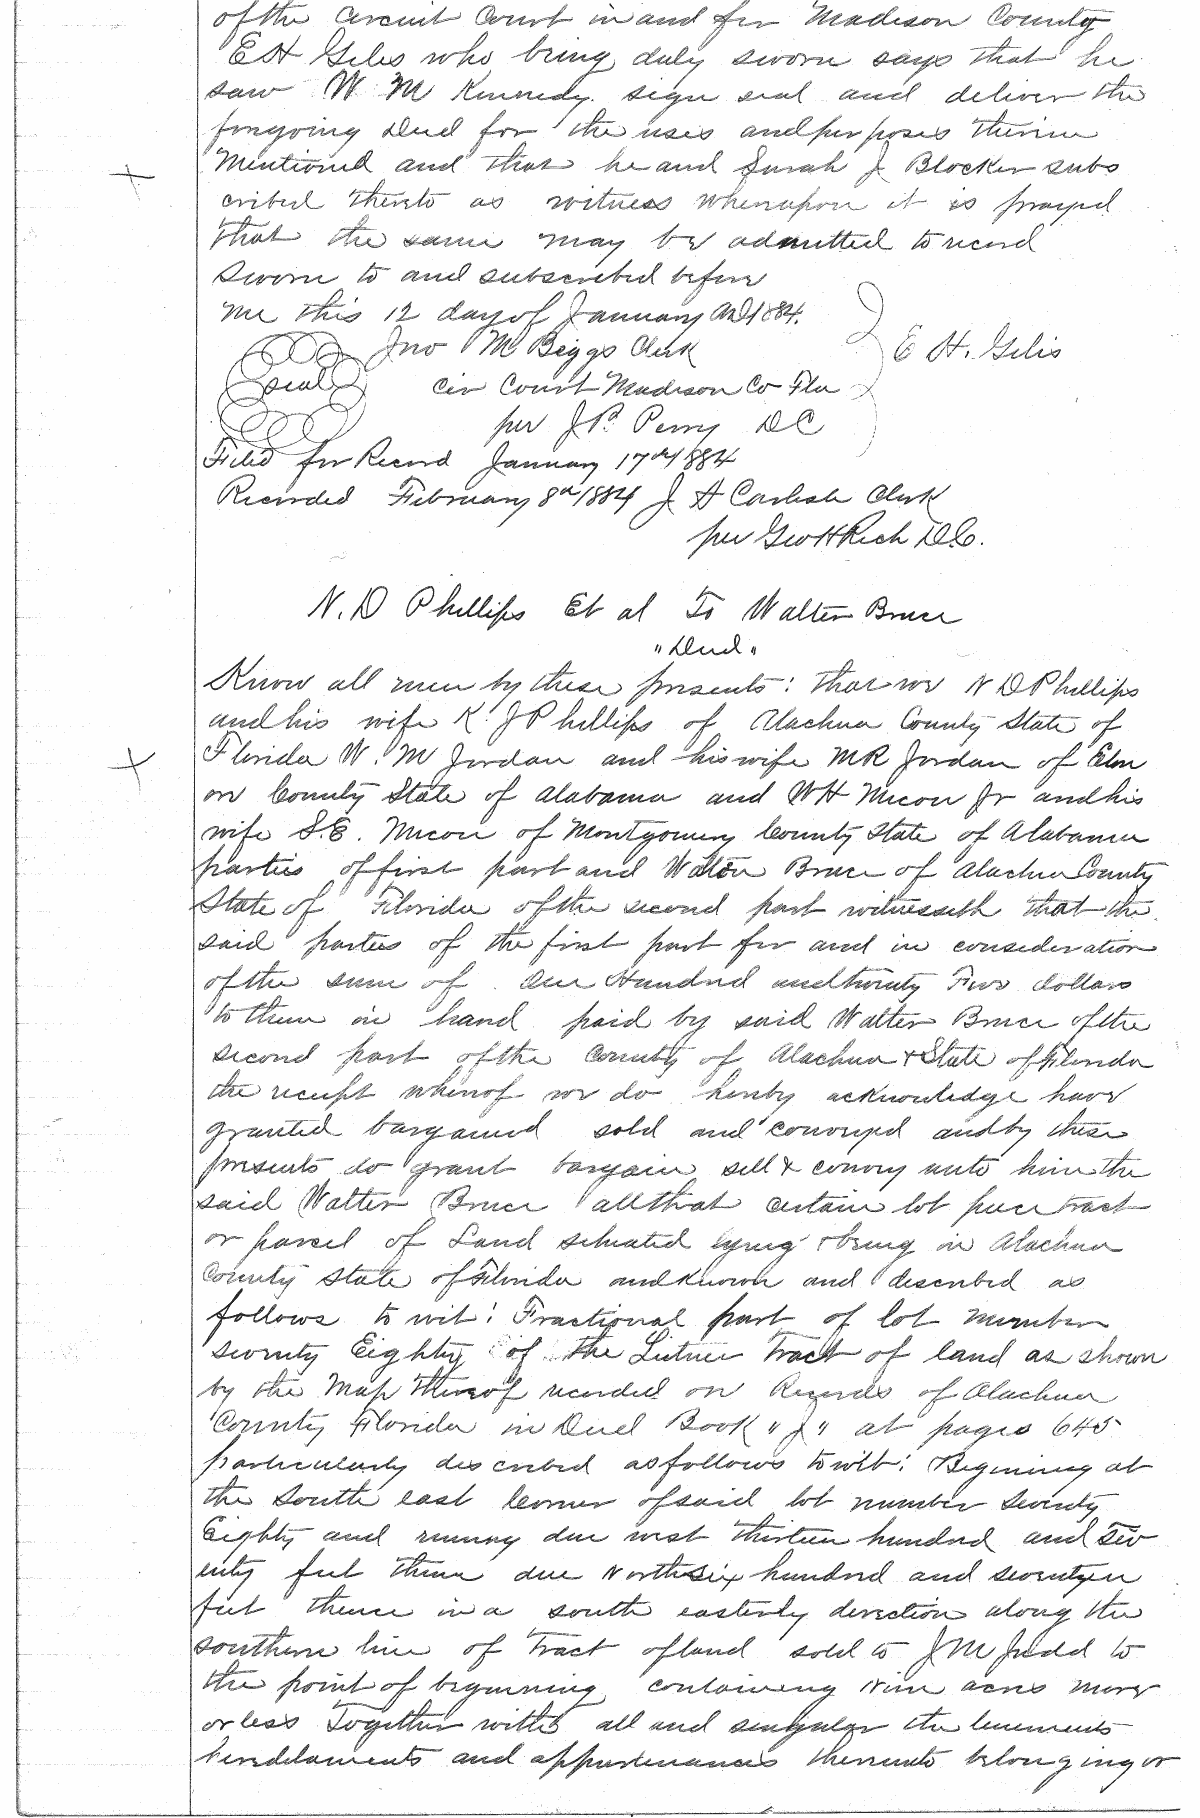 of the Circuit Court in and for Madison County
E H Gelis who being duly sworn says that he
saw W M Kennedy sign seal and deliver the
forgoing Deed for the uses and purposes therin
Mentioned and that he and Sarah J Blocker subs
cribed thereto as witness whereupon it is prayed
that the same may be admitted to record
Sworn to and subscribed before
me this 12 day of January AD 1884.
Jno M Beggs Clerk
E H. Gelis
seal
Cir Court Madison Co Fla
per J P. Perry DC
Filed for Record January 17th 1884
Recorded February 8th 1884 J A Carlisle Clerk
per Geo H Rich D.C.
N. D Phillips Et al To Walter Bruce
"Deed"
Know all men by these presents: That we N D Phillips
and his wife K. J Phillips of Alachua County State of
Florida W. M Jordan and his wife MR Jordan of Elm
ore County State of Alabama and WH Micou Jr and his
wife S.E. Micou of Montgomery County State of Alabama
parties of first part and Walter Bruce of Alachua County
State of Florida of the second part witnesseth that the
said parties of the first part for and in consideration
of the sum of One Hundred and twenty Five dollars
to them in hand paid by said Walter Bruce of the
second part of the County of Alachua & State of Florida
the receipt whereof we do hereby acknowledge have
granted bargained sold and conveyed and by these
presents do grant bargain sell & convey unto him the
said Walter Bruce all that certain lot piece tract
or parcel of Land situated lying & being in Alachua
County State of Florida and known and described as
follows to wit: Fractional part of lot number
seventy Eighty of the Tract of land as shown
by the Map thereof recorded on Records of Alachua
County Florida in Deed Book "J" at pages 645
particularly described as follows to wit: Begining at
the South east Corner of said lot number seventy
Eighty and runing due west thirteen hundred and Sev
enty feet thence due North six hundred and seventy
feet thence in a south easterly direction along the
southern line of Tract of land sold to J M Judd to
the point of beginning containing Nine acres more
or less Together with all and singular the tenements
heredetaments and appurtenances thereunto belonging or